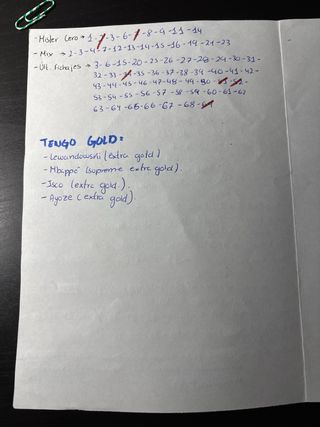 - Míster Cero → 1 - 2 - 3 - 6 - 7 - 8 - 9 - 11 - 14
- Mix → 2 - 3 - 4 - 7 - 12 - 13 - 14 - 15 - 16 - 19 - 21 - 23
- Últ. fichajes → 3 - 6 - 15 - 20 - 25 - 26 - 27 - 28 - 29 - 30 - 31 -
32 - 33 - 35 - 36 - 37 - 38 - 39 - 40 - 41 - 42 -
43 - 44 - 45 - 46 - 47 - 48 - 49 - 50 -
53 - 54 - 55 - 56 - 57 - 58 - 59 - 60 - 61 - 62
63 - 64 - 65 - 66 - 67 - 68 -
TENGO GOLD:
- Lewandowski (extra gold)
- Mbappé (supreme extra gold).
- Isco (extra gold).
- Ayoze (extra gold).